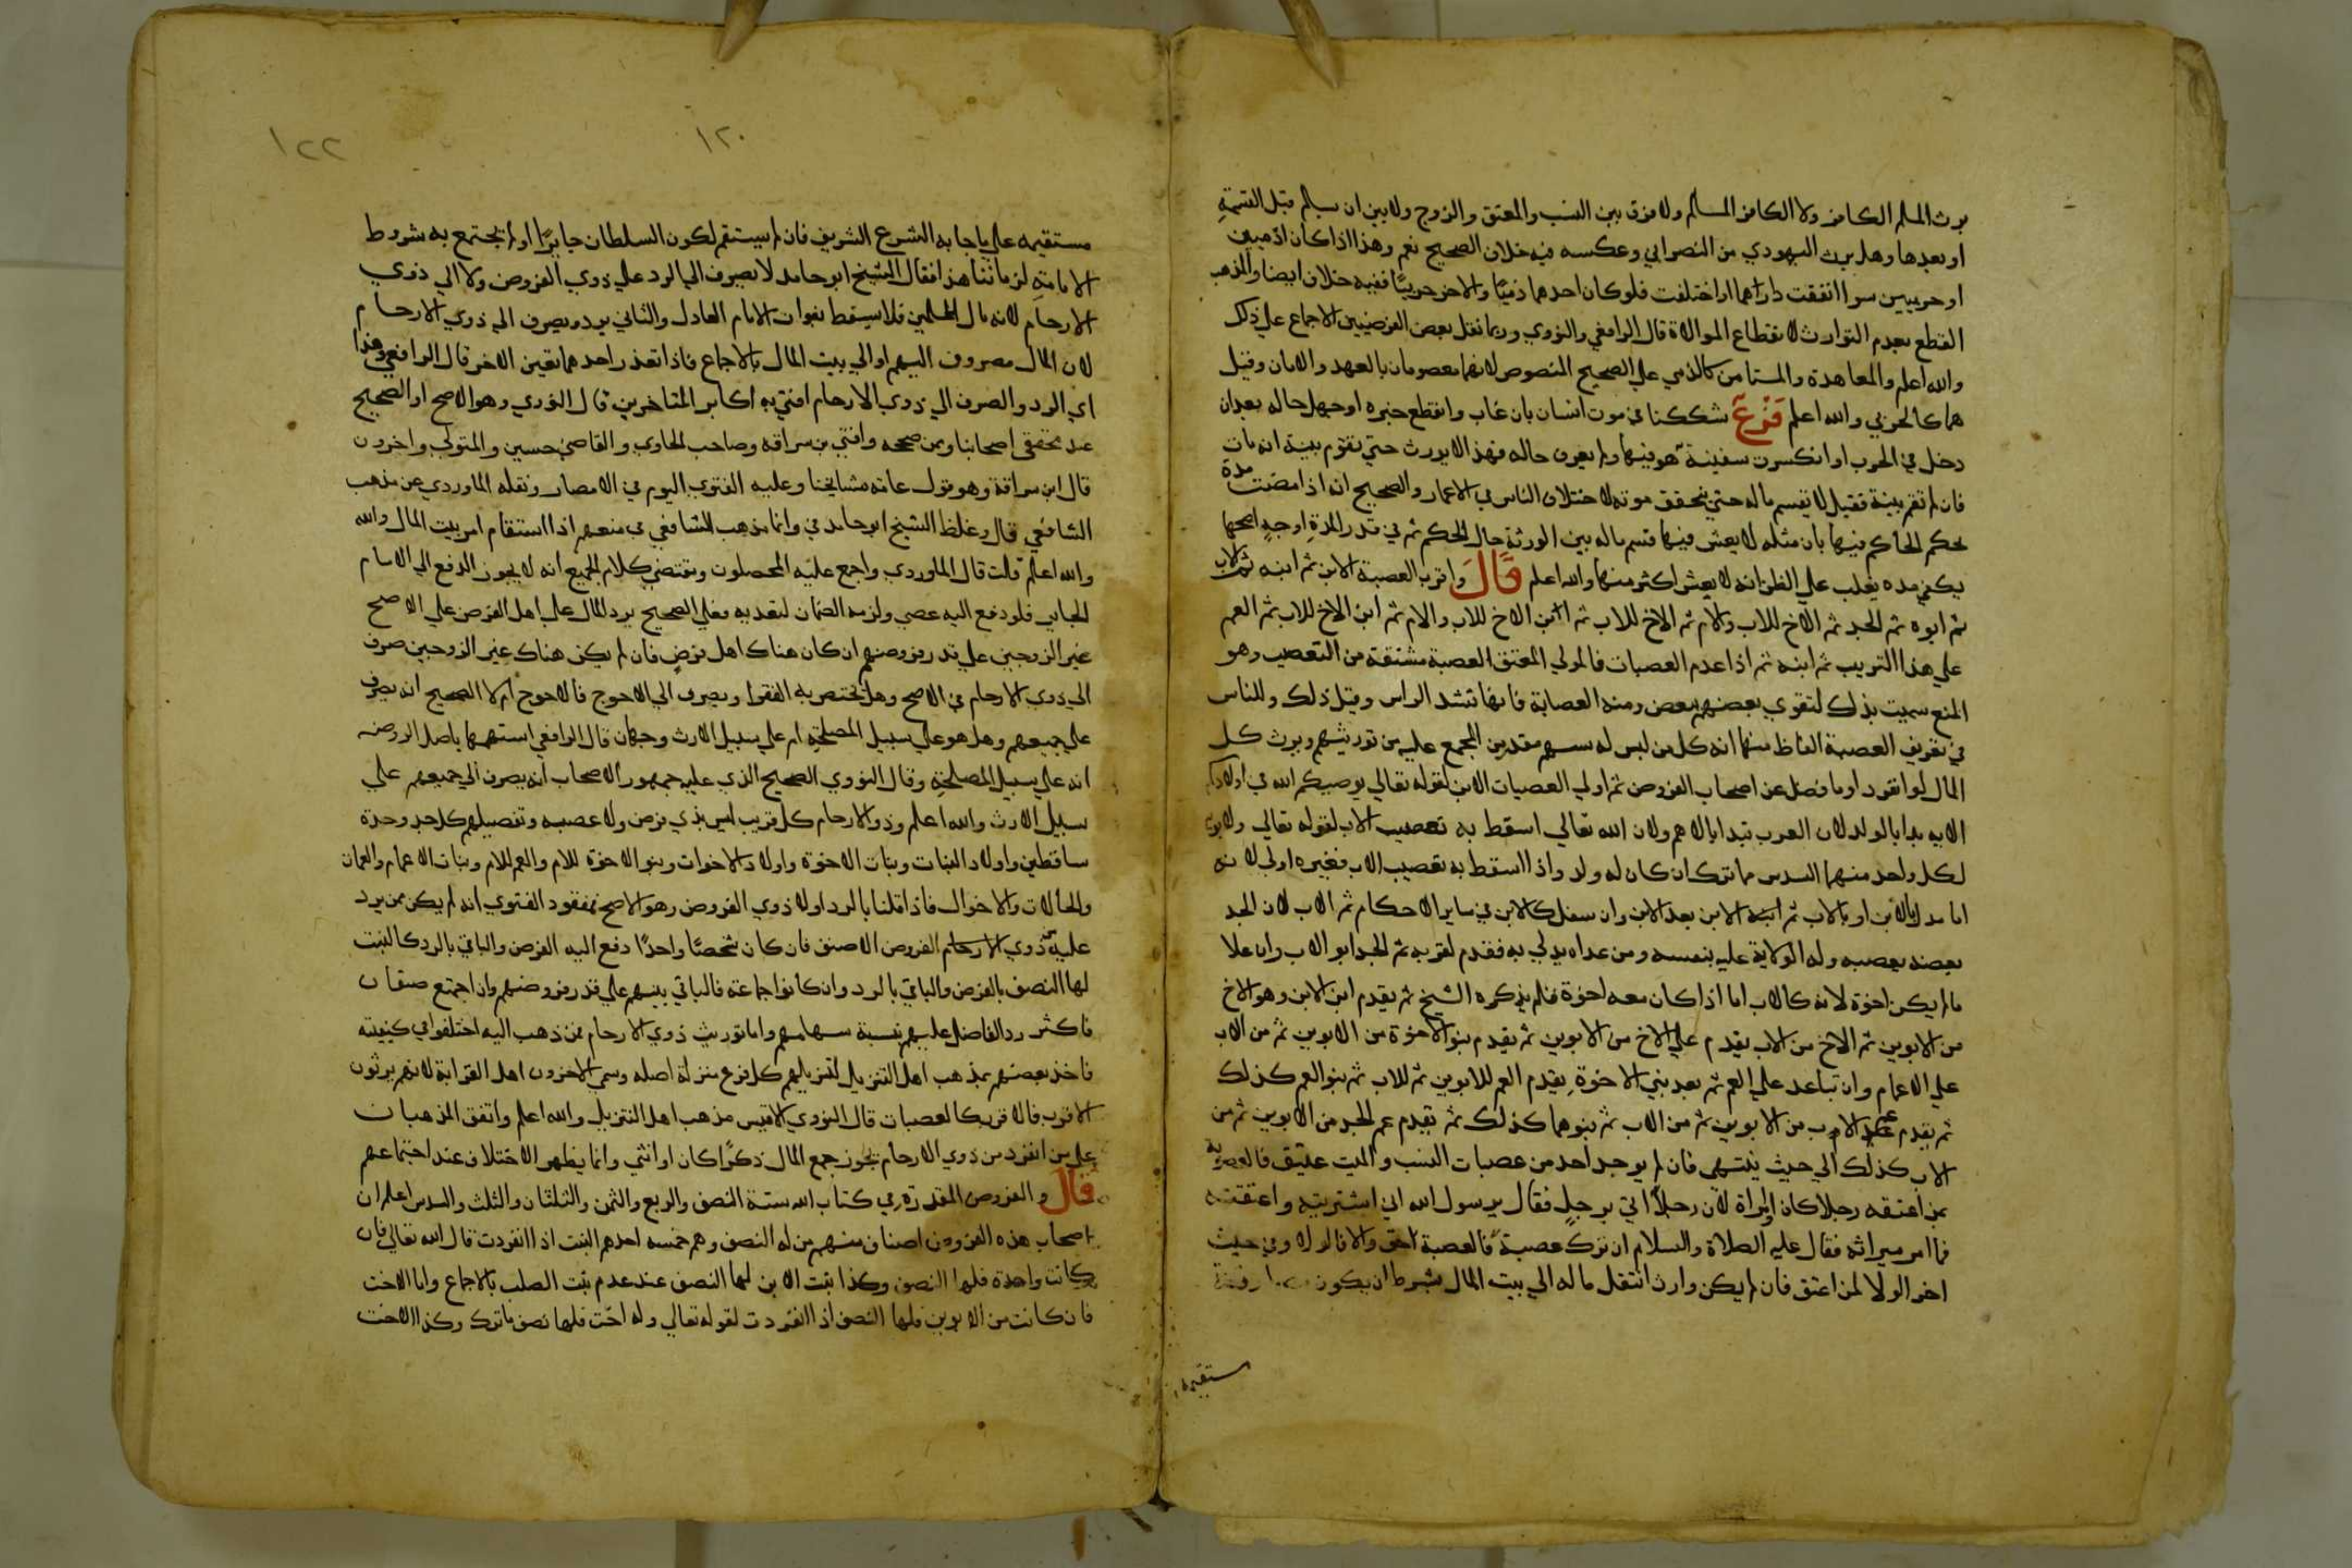 يرث المسلم الكافر ولا الكافر المسلم ولا فرق بين النسب والمعتق والزوج ولا بين ان يسلم قبل القسمة
او بعدها وهل يرث اليهودي من النصراني وعكسه فيه خلاف الصحيح نعم وهذا اذا كانا ذميين
او حربيين سوا اتفقت داراهما او اختلفت فلو كان احدهما ذميًا والاخر حربيًا ففيه خلاف ايضا والمذهب
القطع بعدم التوارث لانقطاع الموالاة قال الرافعي والنووي وربما نقل بعض الفرضيين الاجماع علي ذلك
والله اعلم والمعاهدة والمستامن كالذمي علي الصحيح المنصوص لانهما معصومان بالعهد والامان وقيل
هما كالحربي والله اعلم فَرْعٌ شككنا في موت انسان بان غاب وانقطع خبره او جهل حاله بعد ان
دخل في الحرب او انكسرت سفينة هو فيها ولم يعرف حاله فهذا لا يورث حتي تقوم بينة انه مات
فان لم تقم بينة فقيل لا يقسم ماله حتي يتحقق موته لاختلاف الناس في الاعمار والصحيح انه اذا مضت مدة
يحكم الحاكم فيها بان مثله لا يعيش فيها قسم ماله بين الورثة حال الحكم ثم في قدر المدة اوجه اصحها
يكفي مده يغلب علي الظن انه لا يعيش اكثر منها والله اعلم قَالَ واقرب العصبة الابن ثم ابنه ثم الاب
ثم ابوه ثم الجد ثم الاخ للاب والام ثم الاخ للاب ثم ابن الاخ للاب والام ثم ابن الاخ للاب ثم العم
علي هذا الترتيب ثم ابنه ثم اذا عدم العصبات فالمولي المعتق العصبة مشتقة من التعصيب وهو
المنع سميت بذلك لتقوي بعضهم ببعض ومنه العصابة فانها تشد الراس وقيل ذلك وللناس
في تعريف العصبة الفاظ منها انه كل من ليس له سهم مقدر من المجمع عليه من توريثهم ويرث كل
المال لو انفرد او ما فضل عن اصحاب الفروض ثم اولي العصبات الابن لقوله تعالي يوصيكم الله في اولادكم
الايه بدا بالولد لان العرب تبدا بالاهم ولان الله تعالي اسقط به تعصيب الاب لقوله تعالي ولابويه
لكل واحد منهما السدس مما ترك ان كان له ولد واذا اسقط به تعصيب الاب فغيره اولي لانه
اما مدل بالابن او بالاب ثم ابنه الابن بعد الابن وان سفل كالابن في ساير الاحكام ثم الاب لان الجد
بعضه بعصبه وله الولاية عليه بنفسه ومن عداه يدلي به فقدم لقربه ثم الجد ابو الاب وان علا
ما لم يكن اخوة لانه كالاب اما اذا كان معه اخوة فلم يذكره الشيخ ثم يقدم ابن الابن وهو الاخ
من الابوين ثم الاخ من الاب يقدم علي الاخ من الابوين ثم يقدم بنو الاخوة من الابوين ثم من الاب
علي الاعمام وان تباعد علي العم ثم بعد بني الاخوة يقدم العم للابوين ثم للاب ثم بنو العم كذلك
ثم يقدم عم الاب من الابوين ثم من الاب ثم بنوهما كذلك ثم يقدم عم الجد من الابوين ثم من
الاب كذلك الي حيث ينتهي فان لم يوجد احد من عصبات النسب والميت عتيق فالعصوبة
لمن اعتقه رجلا كان او امراة لان رجلاً اتي برجل فقال يرسول الله اني اشتريته واعتقته
فما امر ميراثه فقال عليه الصلاة والسلام ان ترك عصبة فالعصبة احق والا فالولا وفي حيث
اخر الولا لمن اعتق فان لم يكن وارث انتقل ماله الي بيت المال بشرط ان يكون
مستقيمه
١٢٠
١٢٢
مستقيمه علي ما جا به الشرع الشريف فان لم يستقم لكون السلطان جايرًا او لم تجتمع به شروط
الامامة لزماننا هذا فقال الشيخ ابو حامد لا يصرف الي الرد علي ذوي الفروض ولا الي ذوي
الارحام لانه مال المسلمين فلا يسقط بفوات الامام العادل والثاني يرد ويصرف الي ذوي الارحام
لان المال مصروف اليهم او الي بيت المال بالاجماع فاذا تعذر احدهما تعين الاخر قال الرافعي وهذا
اي الرد والصرف الي ذوي الارحام افتي به اكابر المتاخرين قال النووي وهو الاصح او الصحيح
عند محققي اصحابنا وممن صححه وافتي به بن سراقه وصاحب الحاوي والقاضي حسين والمتولي واخرون
قال ابن سراقة وهو قول عامة مشايخنا وعليه الفتوي اليوم في الامصار ونقله الماوردي عن مذهب
الشافعي قال وغلط الشيخ ابو حامد في وانما مذهب الشافعي في منعهم اذا استقام امر بيت المال والله
والله اعلم قلت قال الماوردي واجمع عليه المحصلون ومقتضي كلام الجميع انه لا يجوز الدفع الي الامام
الجاير فلو دفع اليه عصي ولزمه الضمان لتعديه فعلي الصحيح يرد المال علي اهل الفرض علي الاصح
غير الزوجين علي قدر فروضهم ان كان هناك اهل فرض فان لم يكن هناك غير الزوجين صرف
الي ذوي الارحام في الاصح وهل يختص به الفقرا ويصرف الي الاحوج فالاحوج ام لا الصحيح انه يصرف
علي جميعهم وهل هو علي سبيل المصلحة ام علي سبيل الارث وجهان قال الرافعي اشبههما باصل الروضه
انه علي سبيل المصلحة وقال النووي الصحيح الذي عليه جمهور الاصحاب انه يصرف الي جميعهم علي
سبيل الارث والله اعلم وذو الارحام كل قريب ليس بذي فرض ولا عصبه وتفصيلهم كل جد وجدة
ساقطين واولاد البنات وبنات الاخوة واولاد الاخوات وبنو الاخوة للام والعم للام وبنات الاعمام والعمات
والخالات والاخوال فاذا قلنا بالرد اولا ذوي الفروض وهو الاصح فمفقود الفتوي انه لم يكن ممن يرد
عليه ذوي الارحام الفروض الا صنف فان كان شخصًا واحدًا دفع اليه الفرض والباقي بالرد كالبنت
لها النصف بالفرض والباقي بالرد وان كانوا جماعة فالباقي بينهم علي قدر فروضهم وان اجتمع صنفان
فاكثر رد الفاضل عليهم بنسبة سهامهم واما توريث ذوي الارحام فمن ذهب اليه اختلفوا في كيفيته
فاخذ بعضهم بمذهب اهل التنزيل لتنزيلهم كل فرع منزلة اصله وسمي الاخرون اهل القرابة لانهم يرثون
الاقرب فالاقرب كالعصبات قال النووي الاقيس مذهب اهل التنزيل والله اعلم واتفق المذهبان
علي من انفرد من ذوي الارحام يحوز جمع المال ذكرًا كان او انثي وانما يظهر الاختلاف عند اجتماعهم
قال والفروض المقدرة في كتاب الله ستة النصف والربع والثمن والثلثان والثلث والسدس اعلم ان
اصحاب هذه الفروض اصناف منهم من له النصف وهم خمسه احدهم البنت اذا انفردت قال الله تعالي فان
كانت واحدة فلها النصف وكذا بنت الابن لها النصف عند عدم بنت الصلب بالاجماع واما الاخت
فان كانت من الابوين فلها النصف اذا انفردت لقوله تعالي وله اخت فلها نصف ما ترك وكذا الاخت